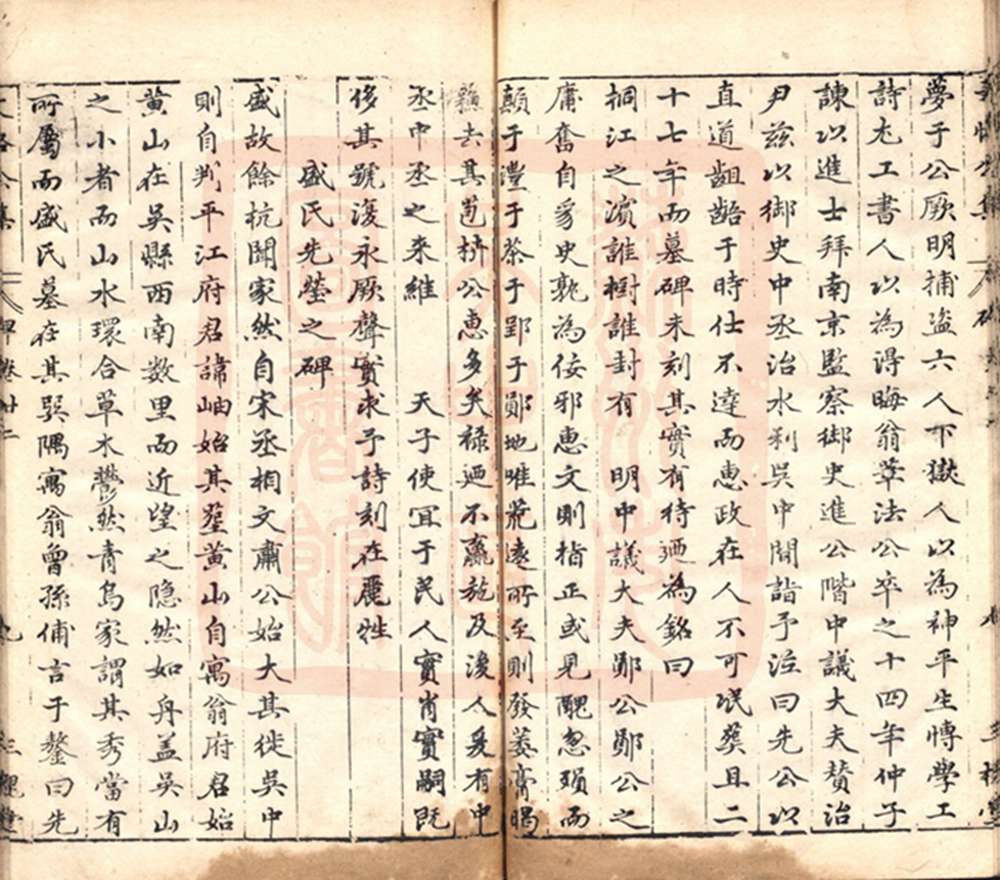 夢于公厥明捕盗六人下獄人以為神平生博學工
詩尤工書人以為得晦翁筆法公卒之十四年仲子
諫以進士拜南京監察御史進公階中議大夫贊治
尹茲以御史中丞治水利吳中間詣予泣曰先公以
直道齟齬于時仕不達而惠政在人不可泯葬且二
十七年而墓碑未刻其實有待廼為銘曰
桐江之濵誰樹誰封有　明中議大夫鄭公鄭公之
庸奮自豸史孰為佞邪惠文則指正或見醜忽熲而
顛于灃于茶于郢于鄖地唯荒遠所至則發萎膏暍
去其邕桥公惠多矣禄廼不贏施及後人爰有中
丞中丞之来維　　天子使宜于民人實肖實嗣既
侈其號復永厥聲實求予詩刻在麗牲
　　盛氏先塋之碑
盛故餘杭聞家然自宋丞相文肅公始大其徙吳中
則自判平江府君諱岫始其塟黄山自寓翁府君始
黄山在吳縣西南数里而近望之隐然如舟盖吳山
之小者而山水環合草木鬱然青烏家謂其秀當有
所屬而盛氏墓在其巽隅寓翁曾孫俌言于鏊曰先